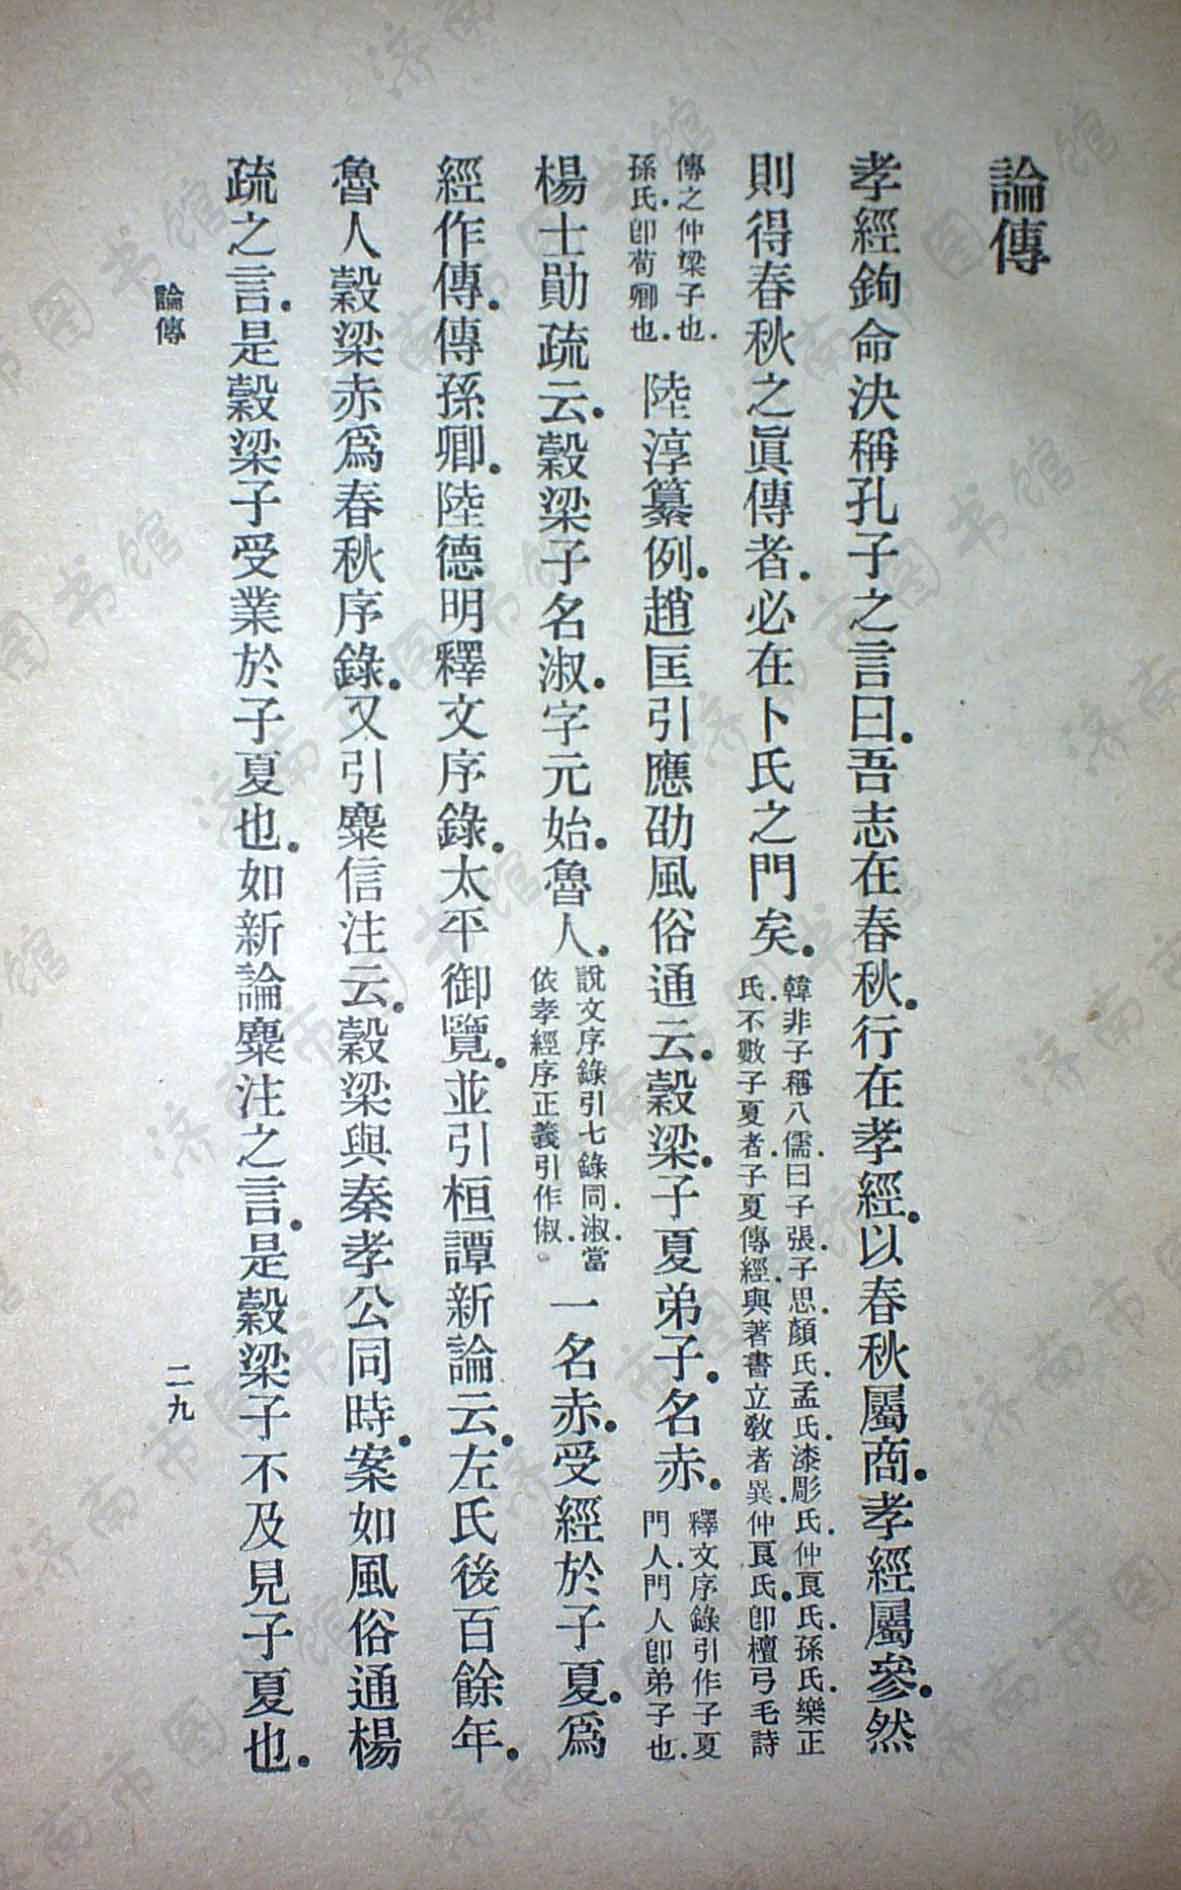 論傳
孝經鉤命決稱孔子之言曰.吾志在春秋.行在孝經.以春秋屬商.孝經屬參.然
則得春秋之眞傳者.必在卜氏之門矣.
韓非子稱八儒.曰子張.子思.顏氏.孟氏.漆彫氏.仲良氏.孫氏.樂正
氏.不數子夏者.子夏傳經.與著書立敎者異.仲良氏.卽檀弓毛詩
傳之仲梁子也.
孫氏.卽荀卿也.
陸淳纂例.趙匡引應劭風俗通云.穀梁.子夏弟子.名赤.
釋文序錄引作子夏
門人.門人卽弟子也.
楊士勛疏云.穀梁子名淑.字元始.魯人.
說文序錄引七錄同.淑當
依孝經序正義引作俶.。
一名赤.受經於子夏.爲
經作傳.傳孫卿.陸德明釋文序錄.太平御覽.並引桓譚新論云.左氏後百餘年.
魯人穀梁赤爲春秋序錄.又引麋信注云.穀梁與秦孝公同時.案如風俗通楊
疏之言.是穀梁子受業於子夏也.如新論麋注之言.是穀梁子不及見子夏也.
論傳
二九
济南市图书馆